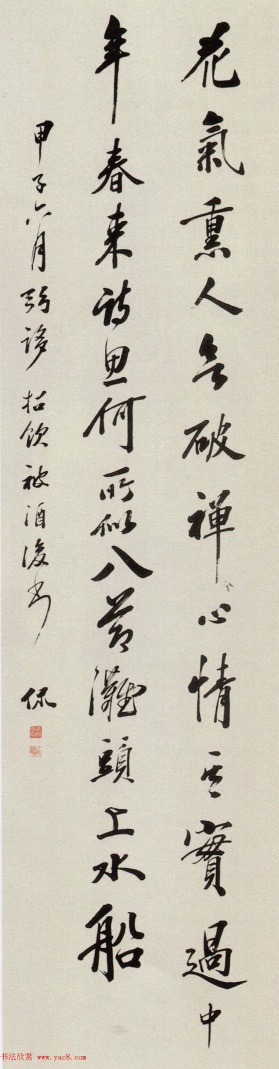 花氣熏人欲破禪心情其實過中
年春來詩思何所似八節灘頭上水船
甲子六月 招飲被酒後書 侃
书法欣赏 www.yac8.com